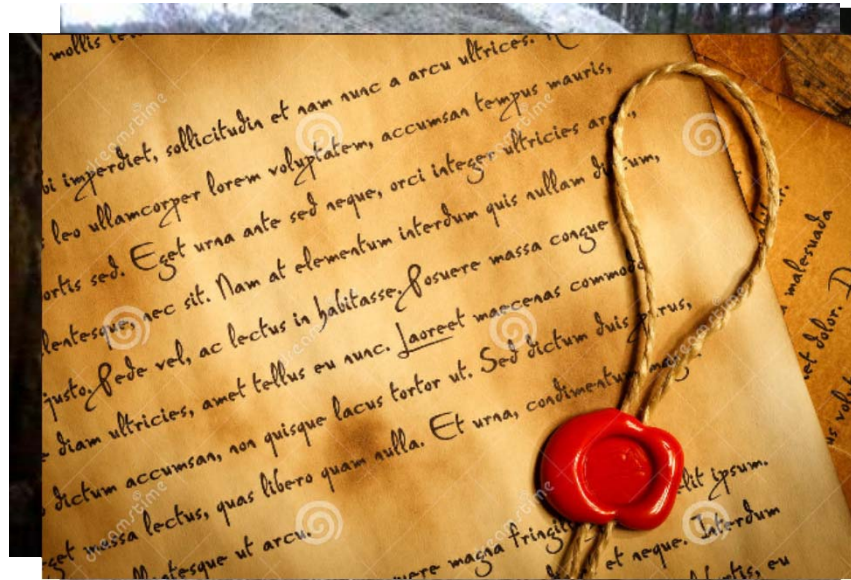 mollis
imperdiet, sollicitudin et nam nunc a arcu ultrices.
leo ullamcorper lorem voluptatem, accumsan tempus mauris,
sed. Eget urna ante sed neque, orci integer ultricies
nec sit. Nam at elementum interdum quis nullam
justo. Pede vel, ac lectus in habitasse. Posuere massa congue
diam ultricies, amet tellus eu nunc. Laoreet maecenas commodo
dictum accumsan, non quisque lacus tortor ut. Sed dictum duis
massa lectus, quas libero quam nulla. Et urna, condimentum
ut arcu.
magna
ipsum.
et neque. Interdum
eu
malesuada
et dolor.
dreamstime